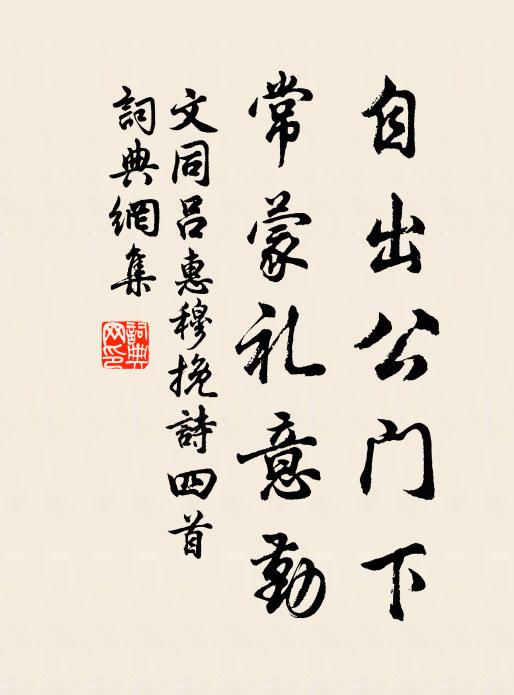 自出公门下
常蒙礼意勤
文同吕惠穆挽詩四首
詞典網集
詞典網印